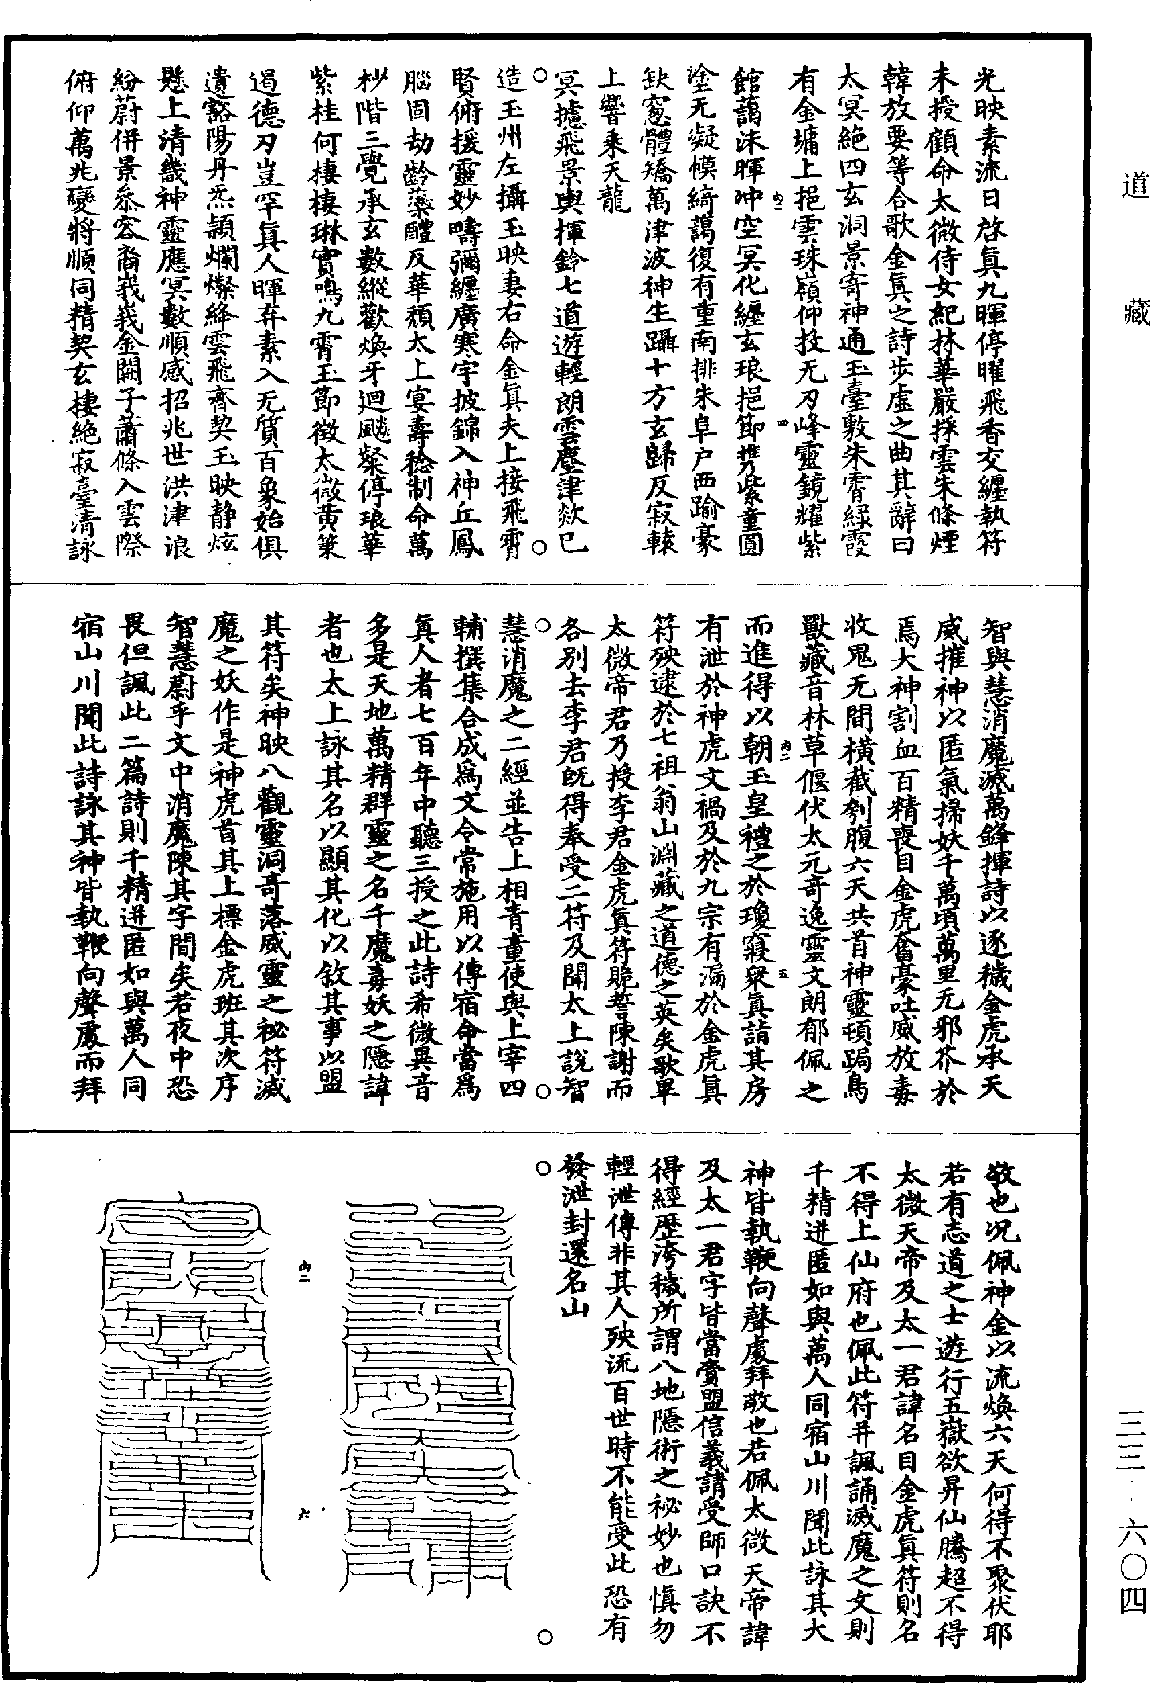 道藏
三三·六〇四
光映素流日啓真九暉停曜飛香交纏執符
未授顧命太微侍女紀林華嚴採雲朱條煙
韓放要等合歌金真之詩步虛之曲其辭曰
太冥絕四玄洞景寄神通玉臺敷朱霄緑霞
有金墉上挹雲珠嶺仰技无刃峰靈鏡耀紫
館藹沫暉冲空冥化纏玄琅挹節携紫童圓
塗无凝模綺藹復有重南排朱阜户西踰豪
缺窻體矯萬津波神生躡十方玄歸反寂轅
上響乘天龍
冥攄飛景輿揮鈴七道遊輕朗雲塵津欻已
造玉州左攝玉映妻右命金真夫上接飛霄
賢俯援靈妙疇彌纏廣寒宇披錦入神丘鳳
腦固劫齡蘂醴反華頹太上宴壽稔制命萬
杪階三覺承玄數縱歡煥牙迴飈粲停琅華
紫桂何棲棲琳實鳴九霄玉節徵太微黄策
遏德刃豈罕真人暉弃素入无質百象始俱
遺豁陽丹炁頴爛燦絳雲飛齊契玉映静炫
懸上清幾神靈應冥數順感招兆世洪津浪
紛蔚併景叅容裔峩峩金闕子蕭條入雲際
俯仰萬兆變將順同精契玄棲絕寂臺清詠
智與慧消魔滅萬鋒揮詩以逐穢金虎承天
威摧神以匿氣掃妖千萬頃萬里无邪芥於
焉大神割血百精喪目金虎奮豪吐威放毒
收鬼无間橫截刳腹六天共首神靈頓跼鳥
獸藏音林草偃伏太元奇逸靈文朗郁佩之
而進得以朝玉皇禮之於瓊寢衆真詣其房
有泄於神虎文禍及於九宗有漏於金虎真
符殃逮於七祖翁山淵藏之道德之英矣歌畢
太微帝君乃授李君金虎真符跪誓陳謝而
各別去李君既得奉受二符及聞太上說智
慧消魔之二經並告上相青童使與上宰四
輔撰集合成爲文令常施用以傳宿命當爲
真人者七百年中聽三授之此詩希微異音
多是天地萬精群靈之名千魔毒妖之隱諱
者也太上詠其名以顯其化以敘其事以盟
其符矣神映八觀靈洞奇落威靈之祕符滅
魔之妖作是神虎首其上標金虎班其次序
智慧蔚乎文中消魔陳其字間矣若夜中恐
畏但諷此二篇詩則千精迸匿如與萬人同
宿山川聞此詩詠其神皆執鞭向聲處而拜
敬也况佩神金以流煥六天何得不聚伏耶
若有志道之士遊行五嶽欲昇仙騰超不得
太微天帝及太一君諱名目金虎真符則名
不得上仙府也佩此符并諷誦滅魔之文則
千精迸匿如與萬人同宿山川聞此詠其大
神皆執鞭向聲處拜敬也若佩太微天帝諱
及太一君字皆當賫盟信義請受師口訣不
得經歷洿穢所謂八地隱術之祕妙也慎勿
輕泄傳非其人殃流百世時不能受此恐有
發泄封還名山